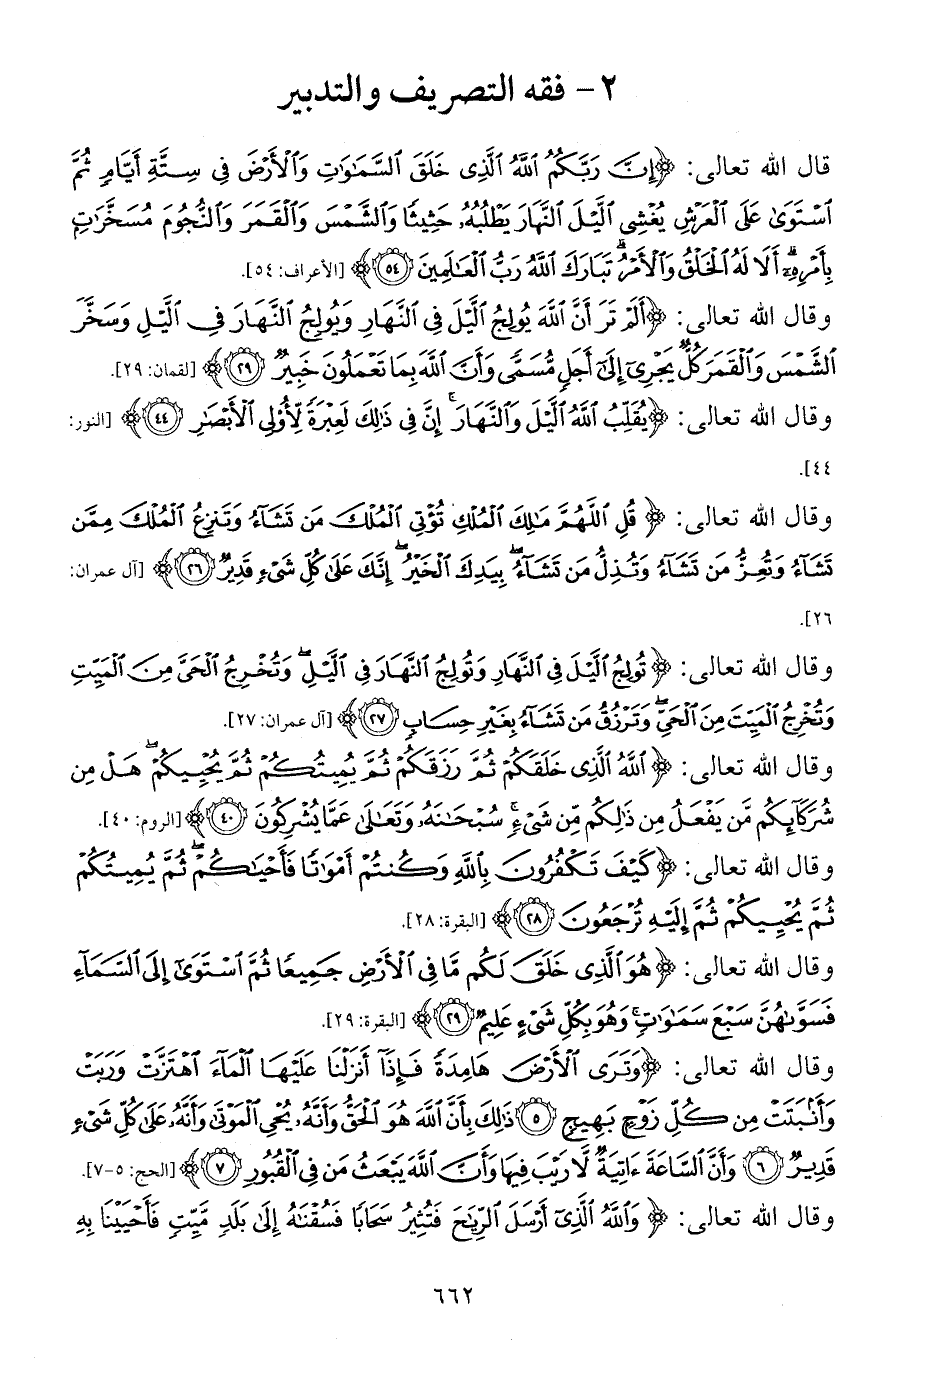 ٢- فقه التصريف والتدبير
قال الله تعالى: ﴿إِنَّ رَبَّكُمُ ٱللَّهُ ٱلَّذِى خَلَقَ ٱلسَّمَٰوَٰتِ وَٱلْأَرْضَ فِى سِتَّةِ أَيَّامٍ ثُمَّ
ٱسْتَوَىٰ عَلَى ٱلْعَرْشِ يُغْشِى ٱلَّيْلَ ٱلنَّهَارَ يَطْلُبُهُۥ حَثِيثًا وَٱلشَّمْسَ وَٱلْقَمَرَ وَٱلنُّجُومَ مُسَخَّرَٰتٍۭ
بِأَمْرِهِۦٓ ۗ أَلَا لَهُ ٱلْخَلْقُ وَٱلْأَمْرُ ۗ تَبَارَكَ ٱللَّهُ رَبُّ ٱلْعَٰلَمِينَ ٥٤﴾ [الأعراف: ٥٤].
وقال الله تعالى: ﴿أَلَمْ تَرَ أَنَّ ٱللَّهَ يُولِجُ ٱلَّيْلَ فِى ٱلنَّهَارِ وَيُولِجُ ٱلنَّهَارَ فِى ٱلَّيْلِ وَسَخَّرَ
ٱلشَّمْسَ وَٱلْقَمَرَ كُلٌّ يَجْرِىٓ إِلَىٰٓ أَجَلٍ مُّسَمًّى وَأَنَّ ٱللَّهَ بِمَا تَعْمَلُونَ خَبِيرٌ ٢٩﴾ [لقمان: ٢٩].
وقال الله تعالى: ﴿يُقَلِّبُ ٱللَّهُ ٱلَّيْلَ وَٱلنَّهَارَ ۚ إِنَّ فِى ذَٰلِكَ لَعِبْرَةً لِّأُو۟لِى ٱلْأَبْصَٰرِ ٤٤﴾ [النور:
٤٤].
وقال الله تعالى: ﴿قُلِ ٱللَّهُمَّ مَٰلِكَ ٱلْمُلْكِ تُؤْتِى ٱلْمُلْكَ مَن تَشَآءُ وَتَنزِعُ ٱلْمُلْكَ مِمَّن
تَشَآءُ وَتُعِزُّ مَن تَشَآءُ وَتُذِلُّ مَن تَشَآءُ ۖ بِيَدِكَ ٱلْخَيْرُ ۖ إِنَّكَ عَلَىٰ كُلِّ شَىْءٍ قَدِيرٌ ٢٦﴾ [آل عمران:
٢٦].
وقال الله تعالى: ﴿تُولِجُ ٱلَّيْلَ فِى ٱلنَّهَارِ وَتُولِجُ ٱلنَّهَارَ فِى ٱلَّيْلِ ۖ وَتُخْرِجُ ٱلْحَىَّ مِنَ ٱلْمَيِّتِ
وَتُخْرِجُ ٱلْمَيِّتَ مِنَ ٱلْحَىِّ ۖ وَتَرْزُقُ مَن تَشَآءُ بِغَيْرِ حِسَابٍ ٢٧﴾ [آل عمران: ٢٧].
وقال الله تعالى: ﴿ٱللَّهُ ٱلَّذِى خَلَقَكُمْ ثُمَّ رَزَقَكُمْ ثُمَّ يُمِيتُكُمْ ثُمَّ يُحْيِيكُمْ ۖ هَلْ مِن
شُرَكَآئِكُم مَّن يَفْعَلُ مِن ذَٰلِكُم مِّن شَىْءٍ ۚ سُبْحَٰنَهُۥ وَتَعَٰلَىٰ عَمَّا يُشْرِكُونَ ٤٠﴾ [الروم: ٤٠].
وقال الله تعالى: ﴿كَيْفَ تَكْفُرُونَ بِٱللَّهِ وَكُنتُمْ أَمْوَٰتًا فَأَحْيَٰكُمْ ۖ ثُمَّ يُمِيتُكُمْ
ثُمَّ يُحْيِيكُمْ ثُمَّ إِلَيْهِ تُرْجَعُونَ ٢٨﴾ [البقرة: ٢٨].
وقال الله تعالى: ﴿هُوَ ٱلَّذِى خَلَقَ لَكُم مَّا فِى ٱلْأَرْضِ جَمِيعًا ثُمَّ ٱسْتَوَىٰٓ إِلَى ٱلسَّمَآءِ
فَسَوَّىٰهُنَّ سَبْعَ سَمَٰوَٰتٍ ۚ وَهُوَ بِكُلِّ شَىْءٍ عَلِيمٌ ٢٩﴾ [البقرة: ٢٩].
وقال الله تعالى: ﴿وَتَرَى ٱلْأَرْضَ هَامِدَةً فَإِذَآ أَنزَلْنَا عَلَيْهَا ٱلْمَآءَ ٱهْتَزَّتْ وَرَبَتْ
وَأَنۢبَتَتْ مِن كُلِّ زَوْجٍۭ بَهِيجٍ ٥ ذَٰلِكَ بِأَنَّ ٱللَّهَ هُوَ ٱلْحَقُّ وَأَنَّهُۥ يُحْىِ ٱلْمَوْتَىٰ وَأَنَّهُۥ عَلَىٰ كُلِّ شَىْءٍ
قَدِيرٌ ٦ وَأَنَّ ٱلسَّاعَةَ ءَاتِيَةٌ لَّا رَيْبَ فِيهَا وَأَنَّ ٱللَّهَ يَبْعَثُ مَن فِى ٱلْقُبُورِ ٧﴾ [الحج: ٥-٧].
وقال الله تعالى: ﴿وَٱللَّهُ ٱلَّذِىٓ أَرْسَلَ ٱلرِّيَٰحَ فَتُثِيرُ سَحَابًا فَسُقْنَٰهُ إِلَىٰ بَلَدٍ مَّيِّتٍ فَأَحْيَيْنَا بِهِ
٦٦٢